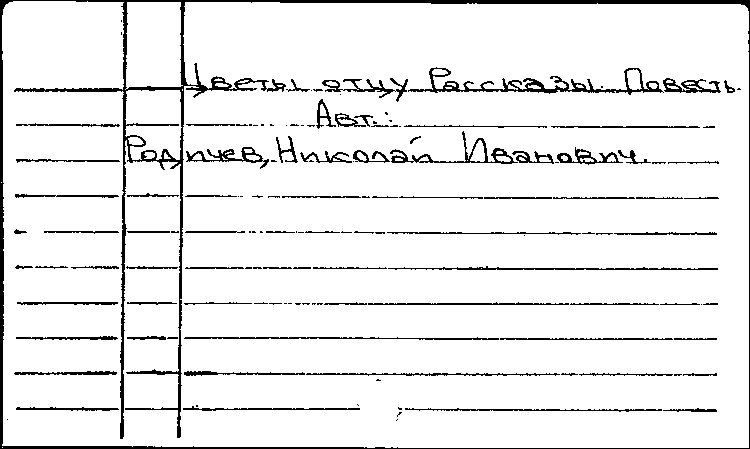 Цветы отцу Рассказы. Повесть.
Авт.:
Родичев, Николай Иванович.